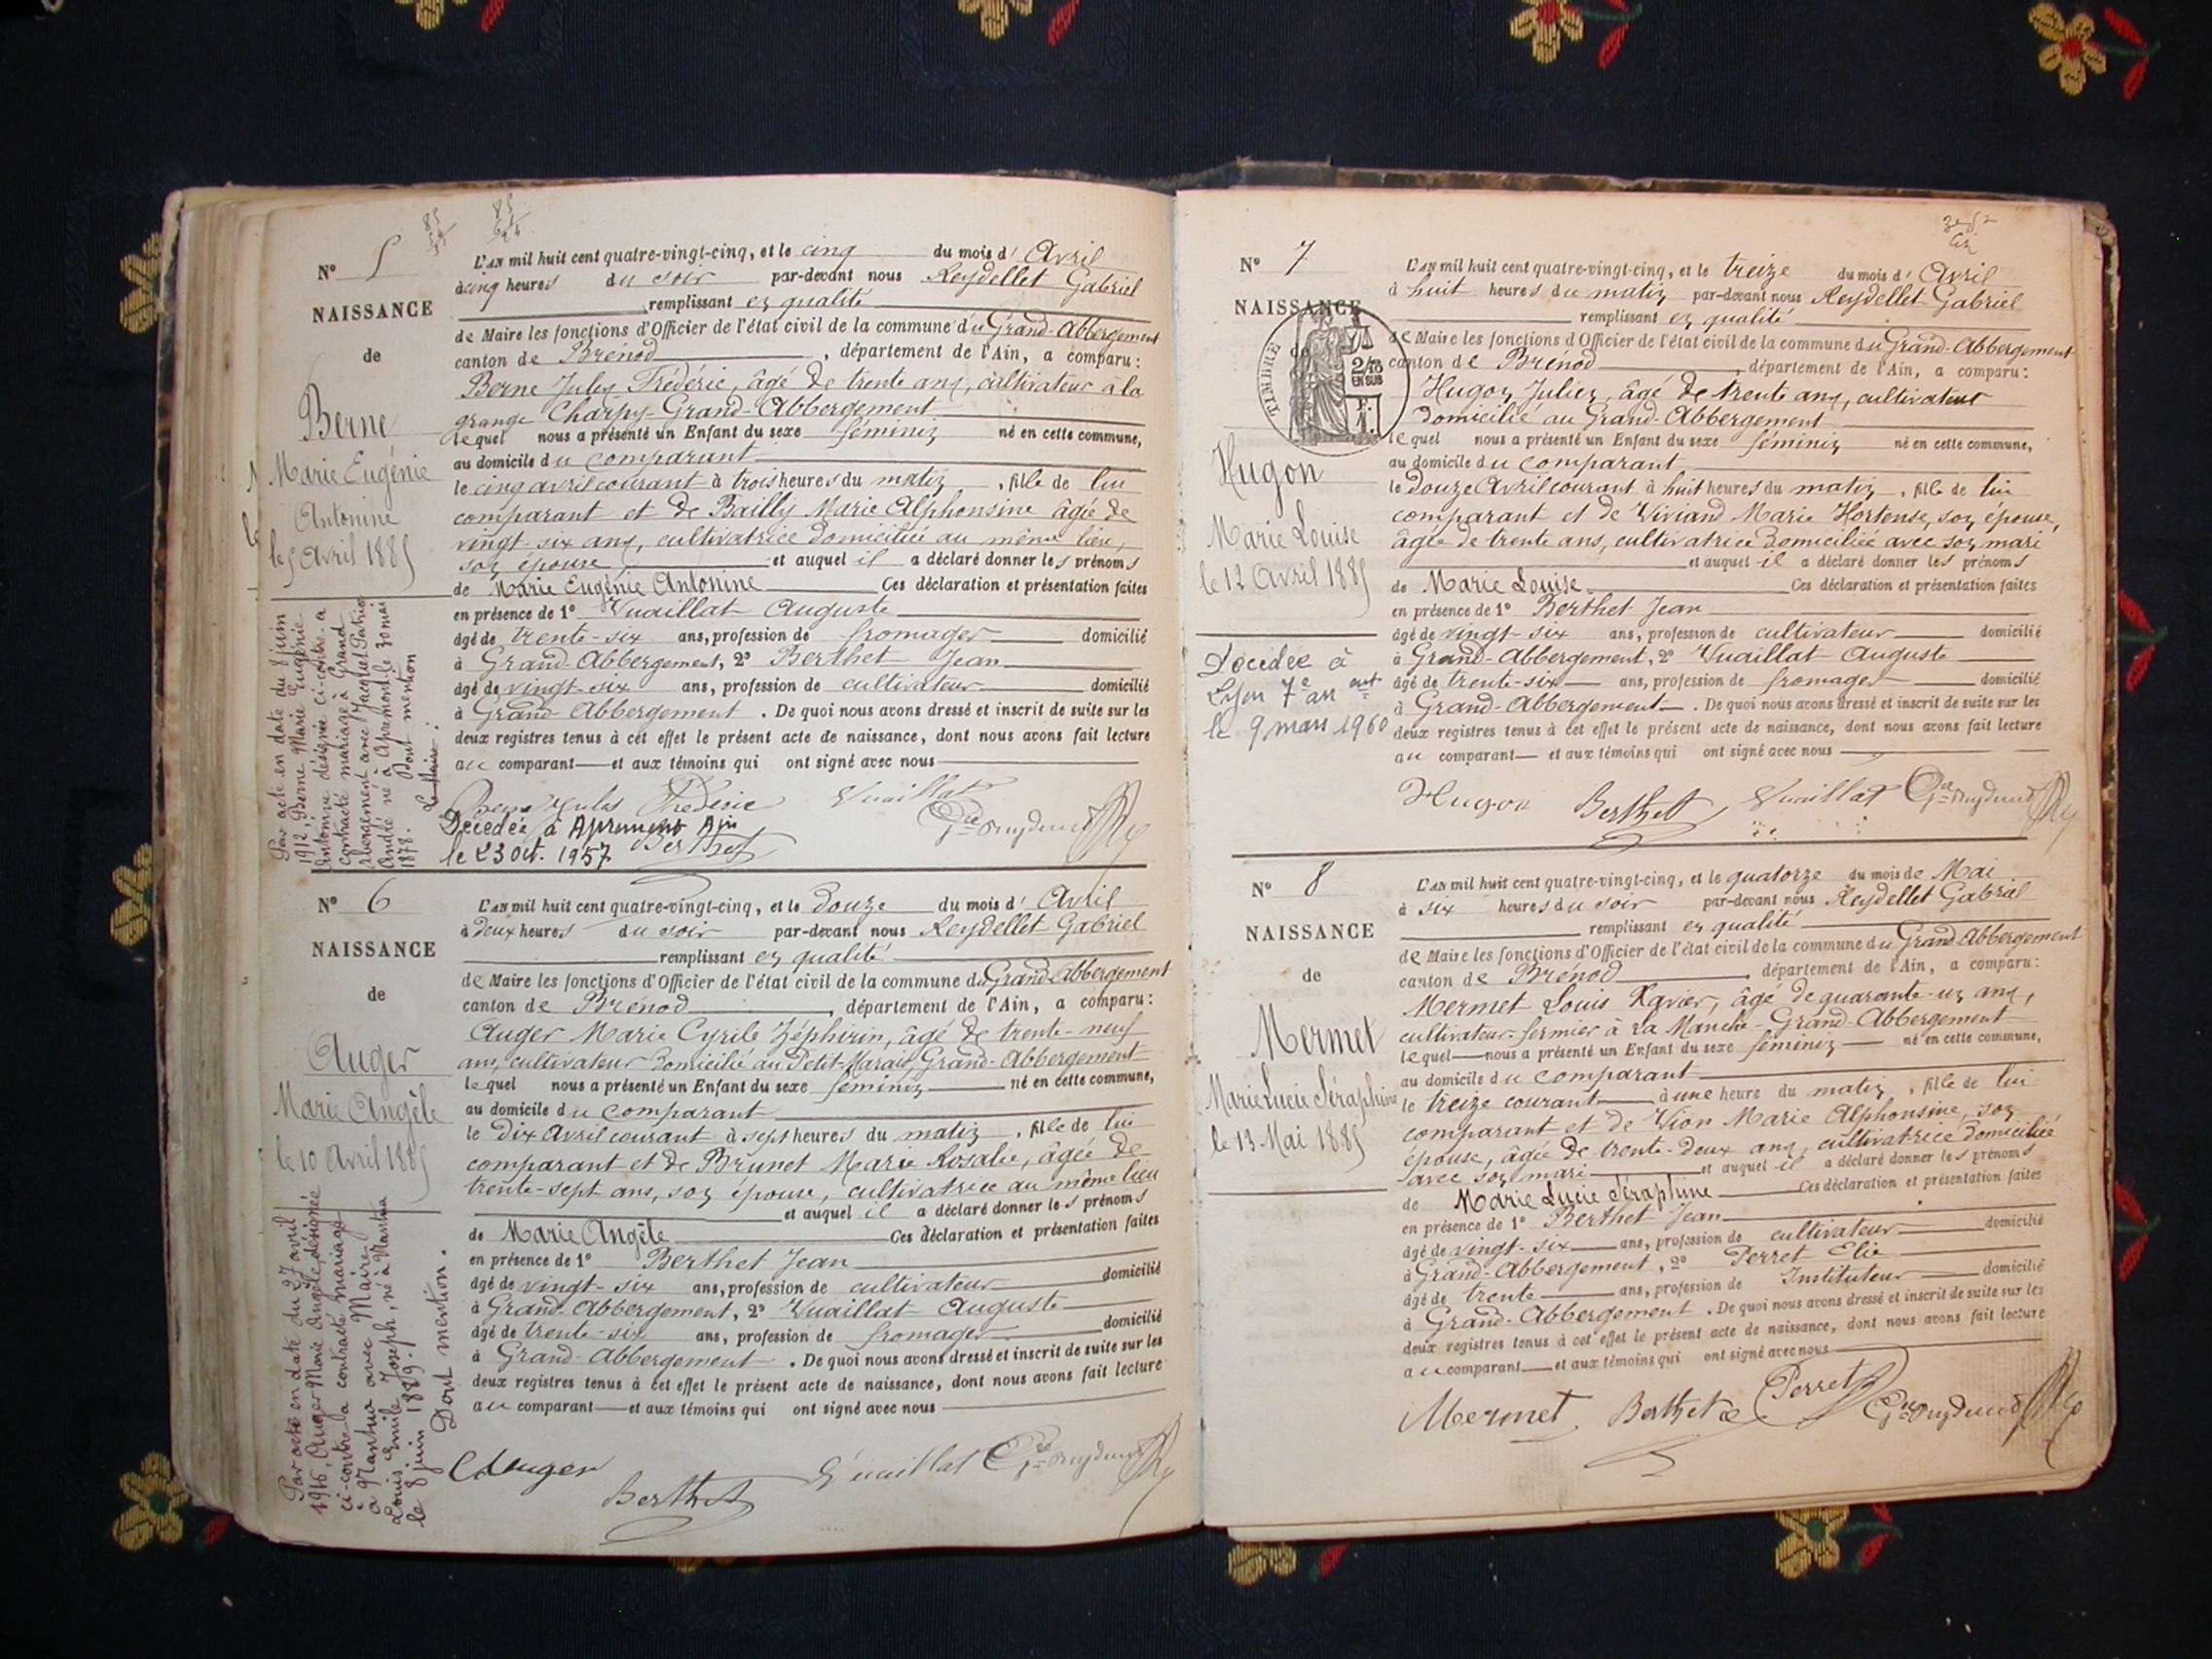 N° 5
NAISSANCE
de
Berne
Marie Eugénie
Antonine
le 5 Avril 1885
Par acte en date du 8 juin
1912, Berne Marie Eugénie
Antonine désignée ci-contre a
contracté mariage à Grand
Abergement avec Jacquet Patrice
André né à Apremont le 30 mai
1878. Dont mention
Le Maire :
L'AN mil huit cent quatre-vingt-cinq, et le cinq du mois d' Avril
à cinq heures du soir par-devant nous Reydellet Gabriel
remplissant en qualité
de Maire les fonctions d'Officier de l'état civil de la commune du Grand-Abbergement
canton de Brénod, département de l'Ain, a comparu:
Berne Jules Frédéric, âgé de trente ans, cultivateur à la
grange Charpy-Grand-Abbergement
lequel nous a présenté un Enfant du sexe féminin né en cette commune,
au domicile du comparant
le cinq avril courant à trois heures du matin, fille de lui
comparant et de Bailly Marie Alphonsine âgée de
vingt-six ans, cultivatrice domiciliée au même lieu,
son épouse, et auquel il a déclaré donner les prénoms
de Marie Eugénie Antonine Ces déclaration et présentation faites
en présence de 1° Vuaillat Auguste
âgé de trente-six ans, profession de fromager domicilié
à Grand-Abbergement, 2° Berthet Jean
âgé de vingt-six ans, profession de cultivateur domicilié
à Grand-Abbergement. De quoi nous avons dressé et inscrit de suite sur les
deux registres tenus à cet effet le présent acte de naissance, dont nous avons fait lecture
au comparant et aux témoins qui ont signé avec nous
Berne Jules Frédéric Vuaillat
Décédée à Apremont Ain
le 23 oct. 1957 Berthet
N° 6
NAISSANCE
de
Auger
Marie Angèle
le 10 Avril 1885
Par acte en date du 27 avril
1916, Auger Marie Angèle désignée
ci-contre a contracté mariage
à Nantua avec Maire
Louis Emile Joseph, né à Nantua
le 8 juin 1889.
Dont mention.
L'AN mil huit cent quatre-vingt-cinq, et le douze du mois d' Avril
à deux heures du soir par-devant nous Reydellet Gabriel
remplissant en qualité
de Maire les fonctions d'Officier de l'état civil de la commune du Grand-Abbergement
canton de Brénod, département de l'Ain, a comparu:
Auger Marie Cyrile Zéphirin, âgé de trente-neuf
ans, cultivateur domicilié au Petit-Marais, Grand-Abbergement
lequel nous a présenté un Enfant du sexe féminin né en cette commune,
au domicile du comparant
le dix avril courant à sept heures du matin, fille de lui
comparant et de Brunet Marie Rosalie, âgée de
trente-sept ans, son épouse, cultivatrice au même lieu
et auquel il a déclaré donner les prénoms
de Marie Angèle Ces déclaration et présentation faites
en présence de 1° Berthet Jean
âgé de vingt-six ans, profession de cultivateur domicilié
à Grand-Abbergement, 2° Vuaillat Auguste
âgé de trente-six ans, profession de fromager domicilié
à Grand-Abbergement. De quoi nous avons dressé et inscrit de suite sur les
deux registres tenus à cet effet le présent acte de naissance, dont nous avons fait lecture
au comparant et aux témoins qui ont signé avec nous
Auger Vuaillat
Berthet
N° 7
NAISSANCE
de
TIMBRE
2/10
EN SUS
Hugon
Marie Louise
le 12 Avril 1885
Décédée à
Lyon 7e arr
le 9 mars 1960
L'AN mil huit cent quatre-vingt-cinq, et le treize du mois d' Avril
à huit heures du matin par-devant nous Reydellet Gabriel
remplissant en qualité
de Maire les fonctions d'Officier de l'état civil de la commune du Grand-Abbergement
canton de Brénod, département de l'Ain, a comparu:
Hugon Julien, âgé de trente ans, cultivateur
domicilié au Grand-Abbergement
lequel nous a présenté un Enfant du sexe féminin né en cette commune,
au domicile du comparant
le douze Avril courant à huit heures du matin, fille de lui
comparant et de Viviand Marie Hortense, son épouse,
âgée de trente ans, cultivatrice domiciliée avec son mari
et auquel il a déclaré donner les prénoms
de Marie Louise Ces déclaration et présentation faites
en présence de 1° Berthet Jean
âgé de vingt-six ans, profession de cultivateur domicilié
à Grand-Abbergement, 2° Vuaillat Auguste
âgé de trente-six ans, profession de fromager domicilié
à Grand-Abbergement. De quoi nous avons dressé et inscrit de suite sur les
deux registres tenus à cet effet le présent acte de naissance, dont nous avons fait lecture
au comparant et aux témoins qui ont signé avec nous
Hugon Berthet Vuaillat
N° 8
NAISSANCE
de
Mermet
Marie Lucie Séraphine
le 13 Mai 1885
L'AN mil huit cent quatre-vingt-cinq, et le quatorze du mois de Mai
à six heures du soir par-devant nous Reydellet Gabriel
remplissant en qualité
de Maire les fonctions d'Officier de l'état civil de la commune du Grand Abbergement
canton de Brénod, département de l'Ain, a comparu:
Mermet Louis Xavier, âgé de quarante-un ans,
cultivateur-fermier à La Manche-Grand-Abbergement
lequel nous a présenté un Enfant du sexe féminin né en cette commune,
au domicile du comparant
le treize courant à une heure du matin, fille de lui
comparant et de Vion Marie Alphonsine, son
épouse, âgée de trente-deux ans, cultivatrice domiciliée
avec son mari et auquel il a déclaré donner les prénoms
de Marie Lucie Séraphine Ces déclaration et présentation faites
en présence de 1° Berthet Jean
âgé de vingt-six ans, profession de cultivateur domicilié
à Grand-Abbergement, 2° Perret Elie
âgé de trente ans, profession de Instituteur domicilié
à Grand-Abbergement. De quoi nous avons dressé et inscrit de suite sur les
deux registres tenus à cet effet le présent acte de naissance, dont nous avons fait lecture
au comparant et aux témoins qui ont signé avec nous
Mermet Berthet Perret